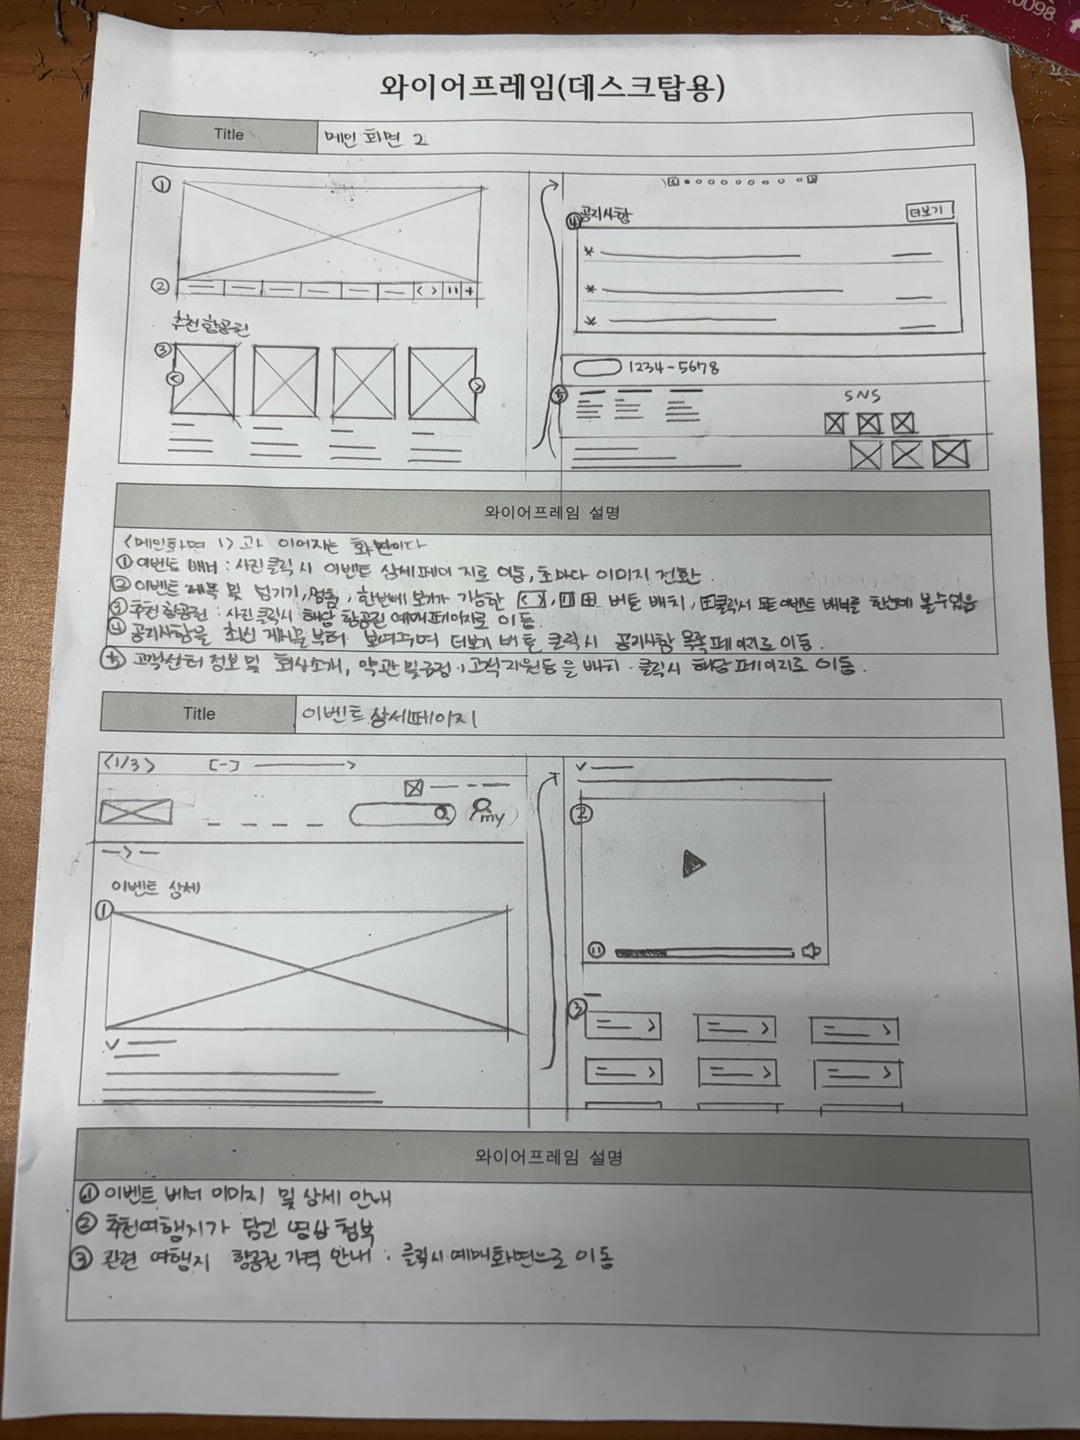 .0098
와이어프레임(데스크탑용)
Title 메인 화면 2
①
②
< > +
추천 항공권
③
< >
④ 공지사항 더보기
1234-5678
⑤
SNS
와이어프레임 설명
<메인화면 1>과 이어지는 화면이다
① 이벤트 배너 : 사진 클릭 시 이벤트 상세페이지로 이동, 초마다 이미지 전환.
② 이벤트 제목 및 넘기기, 멈춤, 한번에 보기가 가능한 < >, 버튼 배치, 클릭시 모든 이벤트 배너를 한번에 볼수있음
③ 추천 항공권 : 사진 클릭시 해당 항공권 예매페이지로 이동.
④ 공지사항을 최신 게시물부터 보여주며 더보기 버튼 클릭 시 공지사항 목록 페이지로 이동.
⑤ 고객센터 정보 및 회사소개, 약관 및 규정, 고객지원 등을 배치. 클릭시 해당 페이지로 이동.
Title 이벤트 상세페이지
<1/3> [-]
my
이벤트 상세
①
②
③
와이어프레임 설명
① 이벤트 배너 이미지 및 상세 안내
② 추천여행지가 담긴 영상 첨부
③ 관련 여행지 항공권 가격 안내. 클릭시 예매화면으로 이동